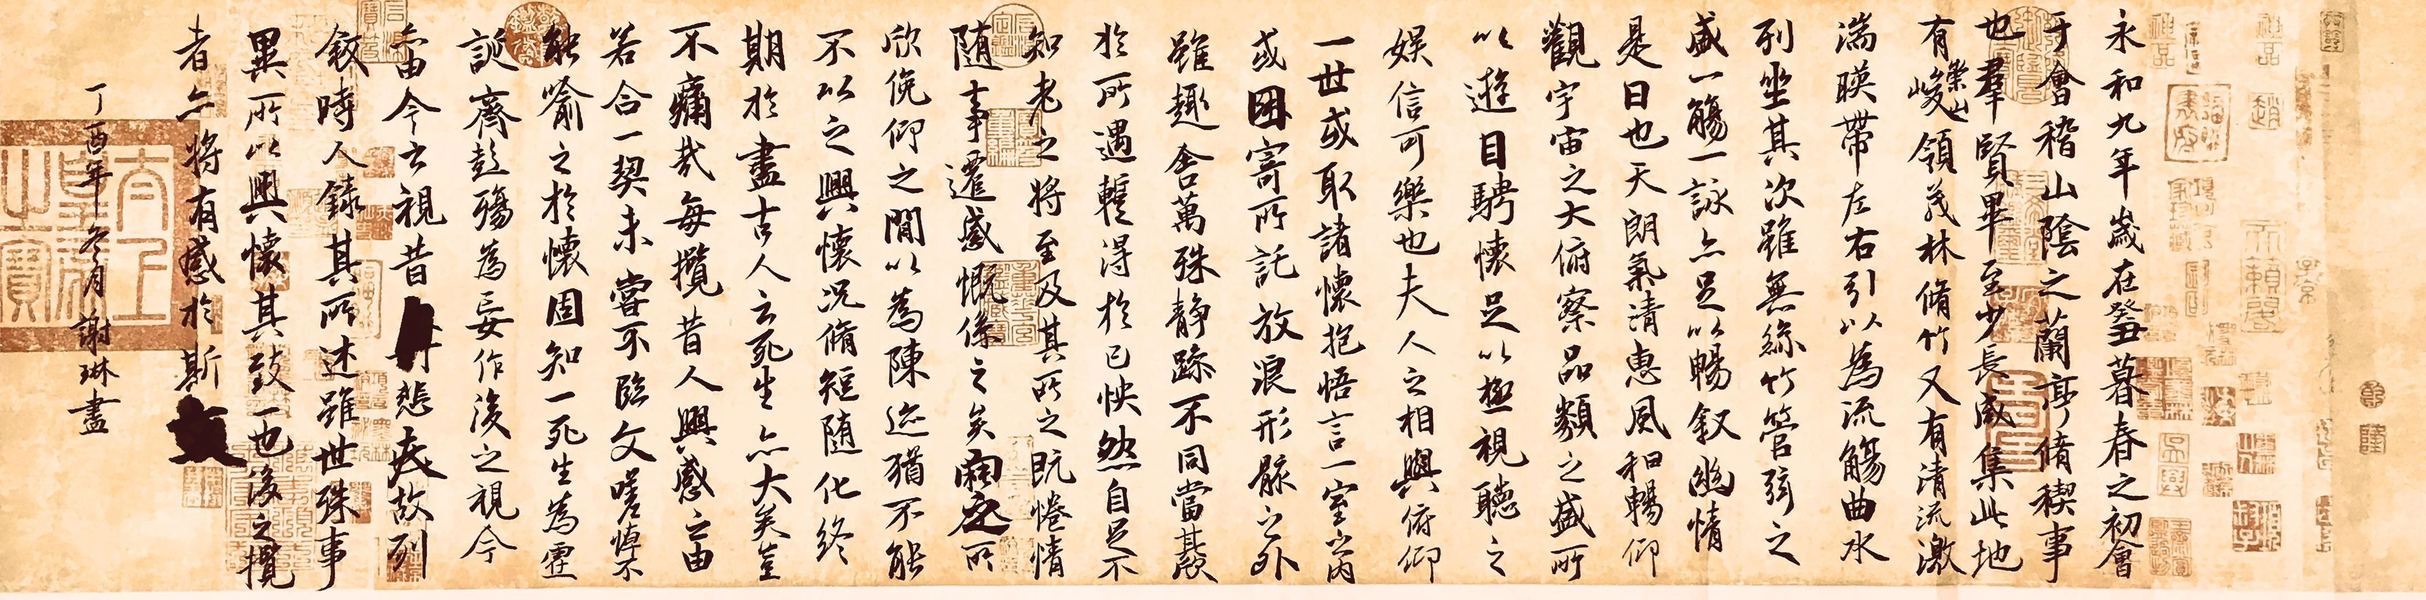 永和九年歲在癸丑暮春之初會
于會稽山陰之蘭亭脩稧事
也羣賢畢至少長咸集此地
有崇山峻領茂林脩竹又有清流激
湍暎帶左右引以為流觴曲水
列坐其次雖無絲竹管弦之
盛一觴一詠亦足以暢敘幽情
是日也天朗氣清惠風和暢仰
觀宇宙之大俯察品類之盛所
以遊目騁懷足以極視聽之
娛信可樂也夫人之相與俯仰
一世或取諸懷抱悟言一室之內
或因寄所託放浪形骸之外
雖趣舍萬殊靜躁不同當其欣
於所遇蹔得於己怏然自足不
知老之將至及其所之既惓情
隨事遷感慨係之矣向之所
欣俛仰之間以為陳迹猶不能
不以之興懷況脩短隨化終
期於盡古人云死生亦大矣豈
不痛哉每攬昔人興感之由
若合一契未嘗不臨文嗟悼不
能喻之於懷固知一死生為虛
誕齊彭殤為妄作後之視今
亦由今之視昔悲夫故列
敘時人錄其所述雖世殊事
異所以興懷其致一也後之攬
者亦將有感於斯文
丁酉年冬月謝琳書